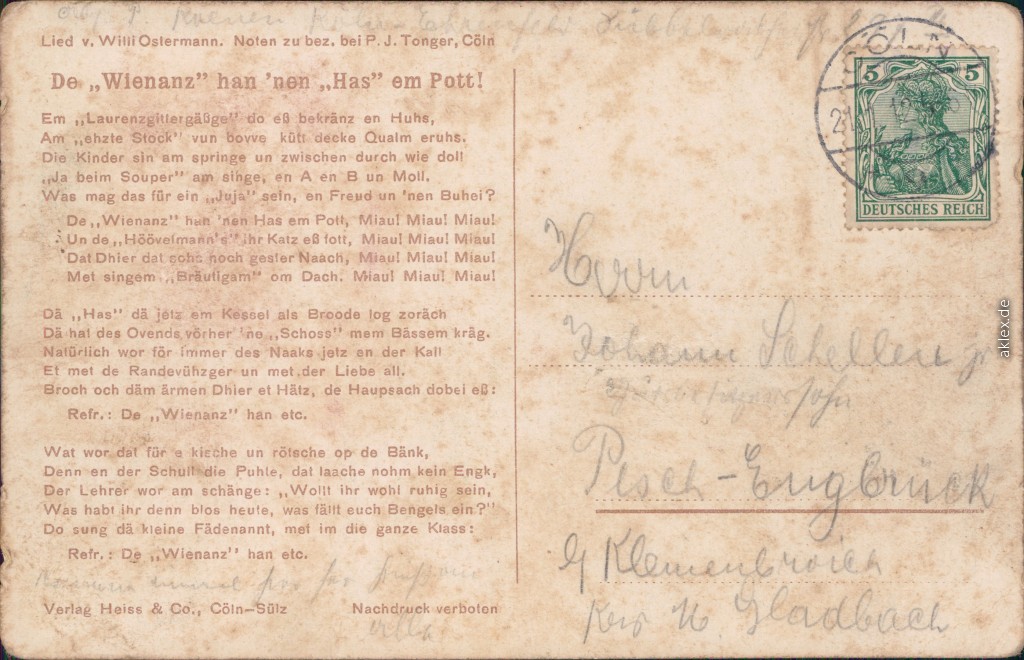 Lied v. Willi Ostermann. Noten zu bez. bei P. J. Tonger, Cöln
De „Wienanz" han 'nen „Has" em Pott!
Em „Laurenzgittergäßge" do eß bekränz en Huhs,
Am „ehzte Stock" vun bovve kütt decke Qualm eruhs.
Die Kinder sin am springe un zwischen durch wie doll
„Ja beim Souper" am singe, en A en B un Moll.
Was mag das für ein „Juja" sein, en Freud un 'nen Buhei?
De „Wienanz" han 'nen Has em Pott, Miau! Miau! Miau!
Un de „Höövelmann's" ihr Katz eß fott, Miau! Miau! Miau!
Dat Dhier dat schs noch gester Naach, Miau! Miau! Miau!
Met singem „Bräutigam" om Dach. Miau! Miau! Miau!
Dä „Has" dä jetz em Kessel als Broode log zoräch
Dä hat des Ovends vörher 'ne „Schoss" mem Bässem kräg.
Natürlich wor för immer des Naaks jetz en der Kall
Et met de Randevühzger un met der Liebe all.
Broch och däm ärmen Dhier et Hätz, de Haupsach dobei eß:
Refr.: De „Wienanz" han etc.
Wat wor dat für e kische un rötsche op de Bänk,
Denn en der Schull die Puhte, dat laache nohm kein Engk,
Der Lehrer wor am schänge: „Wollt ihr wohl ruhig sein,
Was habt ihr denn blos heute, was fällt euch Bengels ein?"
Do sung dä kleine Fädenannt, met im die ganze Klass:
Refr.: De „Wienanz" han etc.
Verlag Heiss & Co., Cöln-Sülz Nachdruck verboten
CÖLN
5 5
DEUTSCHES REICH
Herrn
Johann Schellen jr
Pesch-Engbrück
Klemenbroich
Gladbach
aklex.de